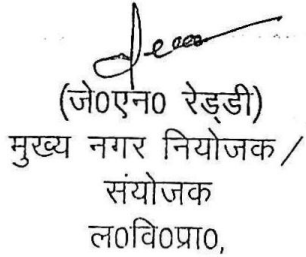 (जे०एन० रेड्डी)
मुख्य नगर नियोजक /
संयोजक
ल०वि०प्रा०,